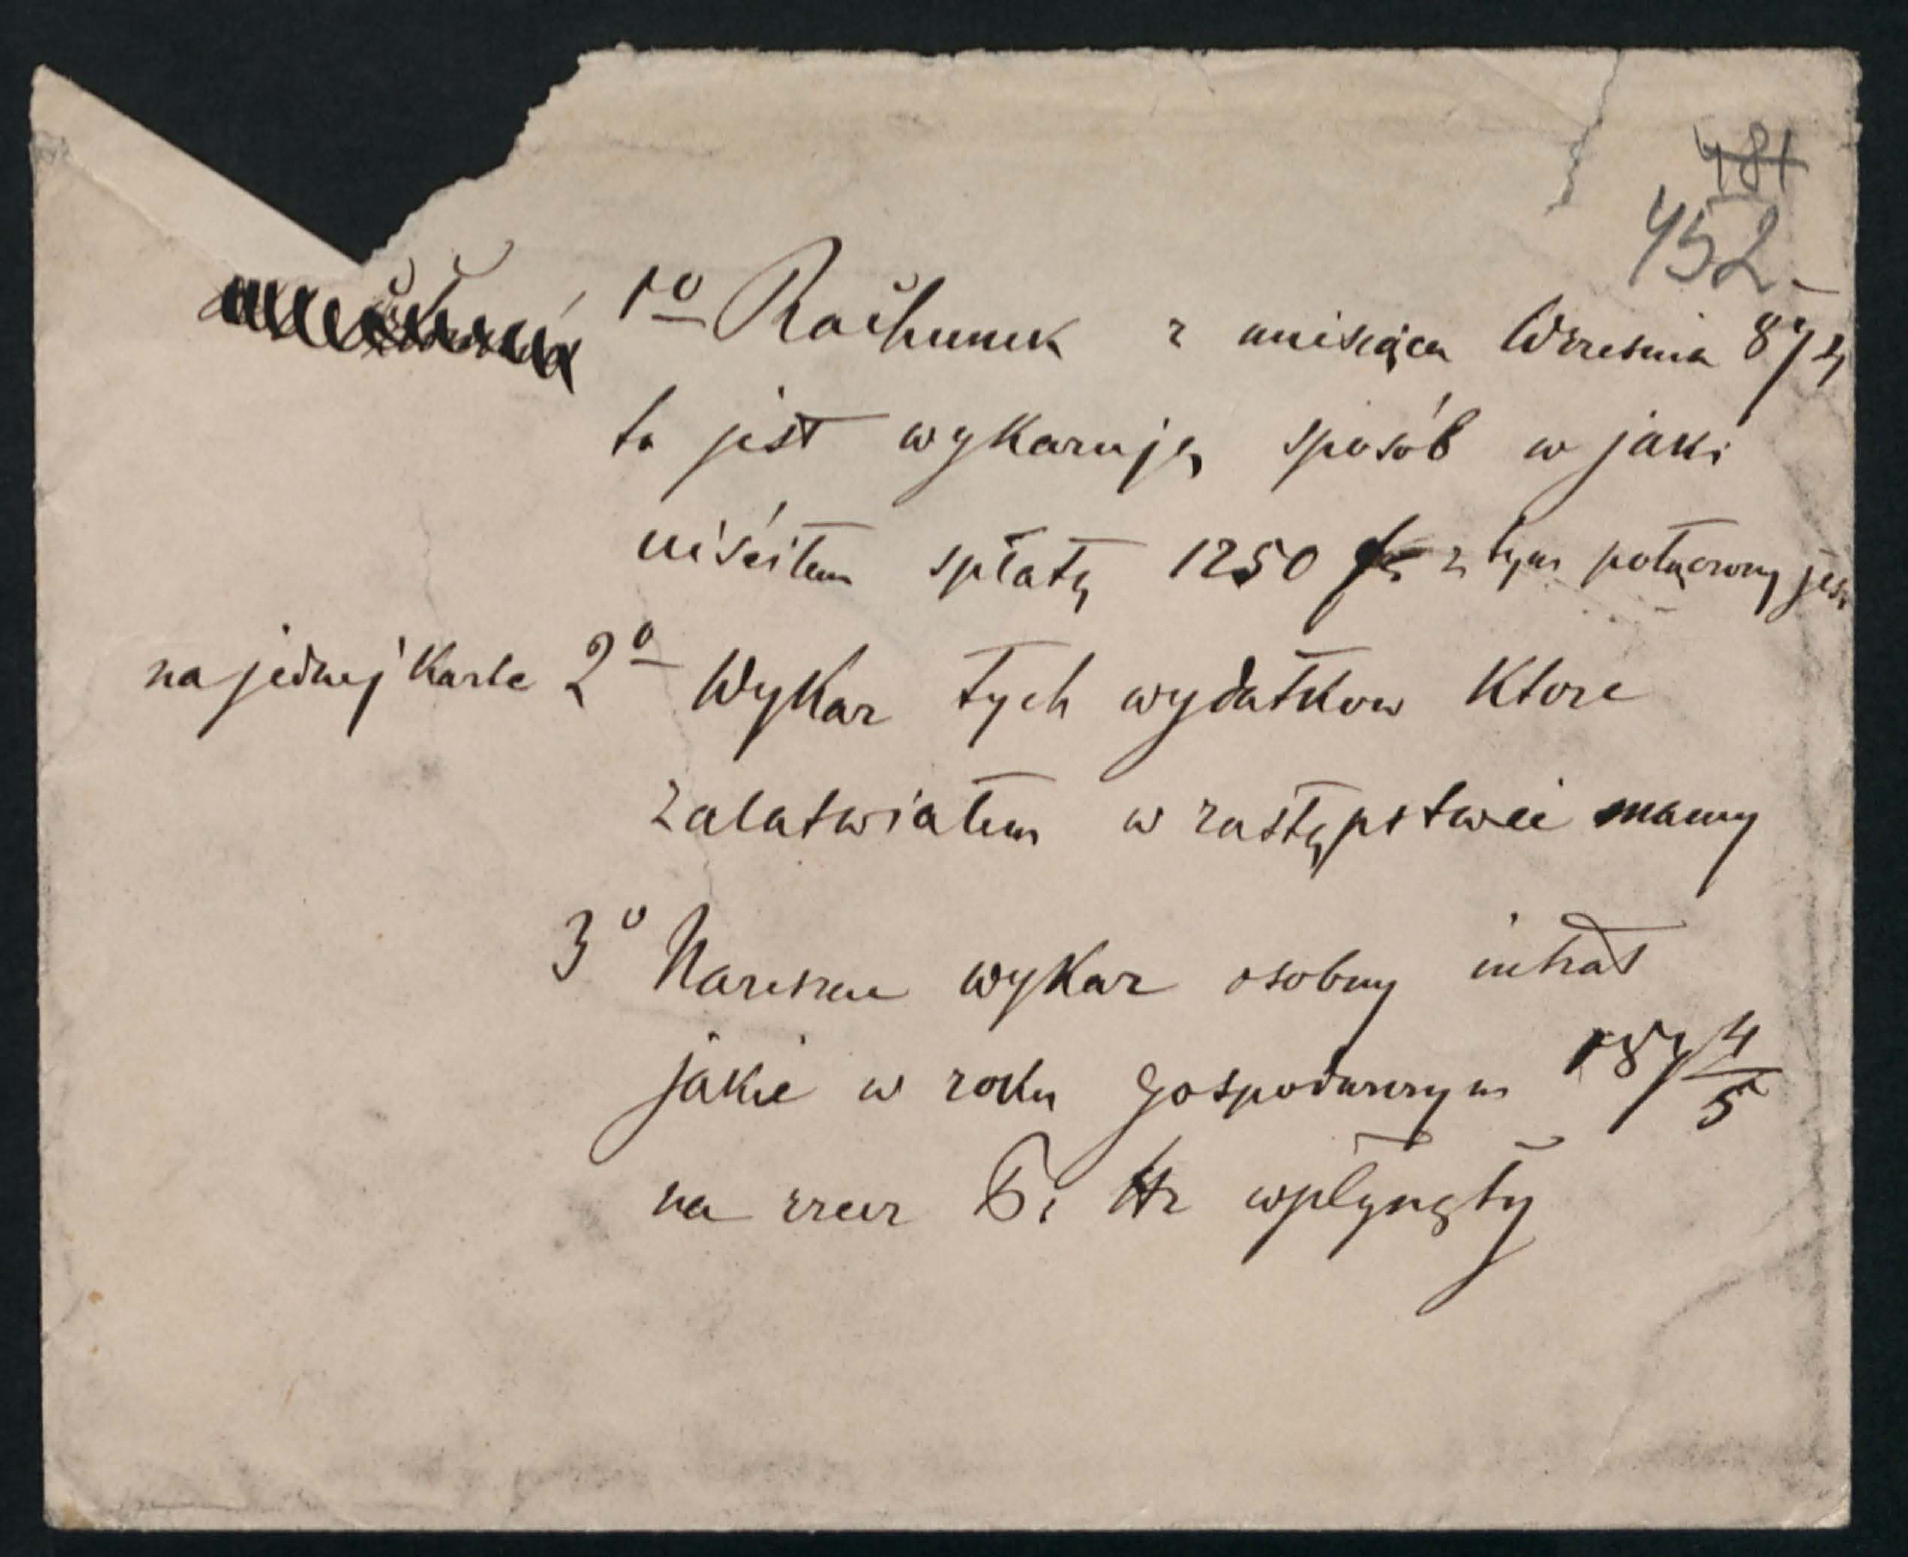 481
452
1o Rachunek z miesiąca Wrzesnia 874
to jest wykazuję sposób w jaki
uiściłem spłatę 1250 z tym połączony jest
na jednej karte 2o Wykaz tych wydatkow ktore
załatwiałem w zastępstwie mamy
3o Nareszcie wykaz osobny intrat
jakie w roku gospodarczym 187 4/5
na rzecz wpłynęły